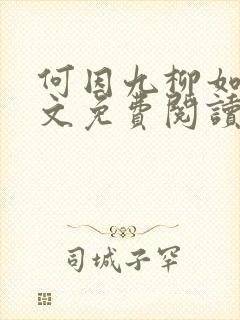 何因九柳如
文免費閱讀
司城子罕